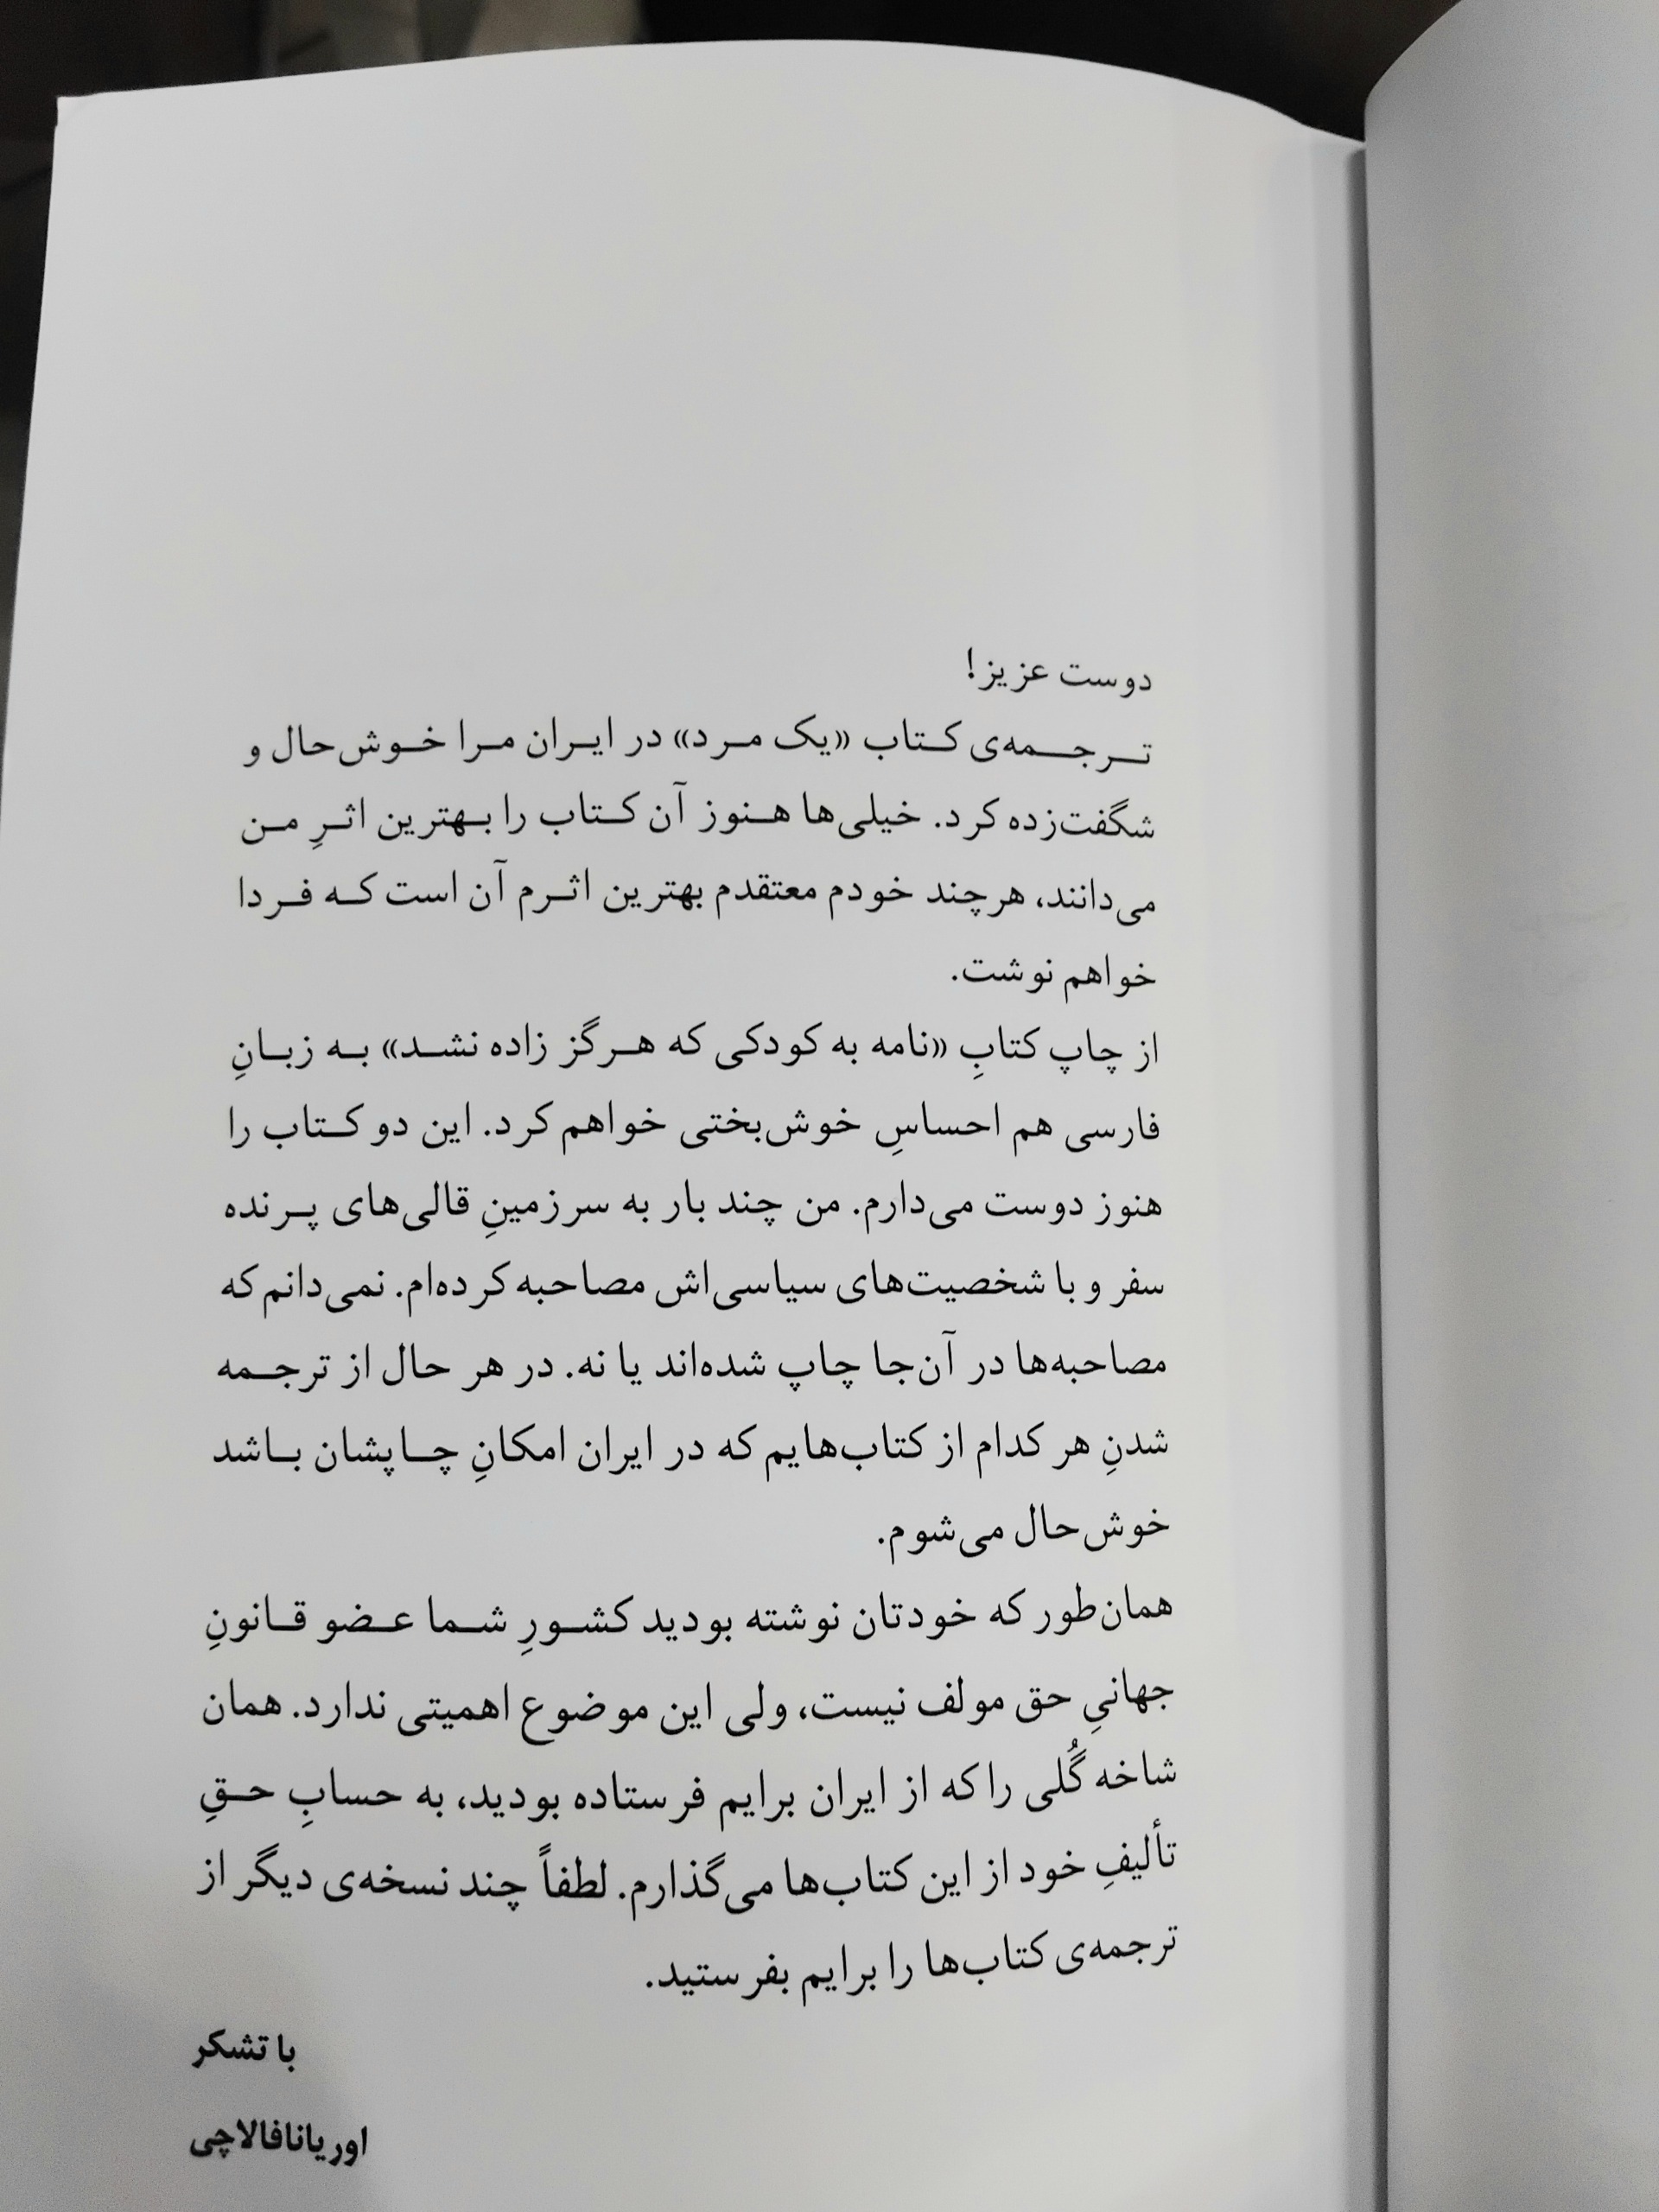 دوست عزیز!
ترجمه‌ی کتاب «یک مرد» در ایران مرا خوش‌حال و
شگفت‌زده کرد. خیلی‌ها هنوز آن کتاب را بهترین اثرِ من
می‌دانند، هرچند خودم معتقدم بهترین اثرم آن است که فردا
خواهم نوشت.
از چاپ کتابِ «نامه به کودکی که هرگز زاده نشد» به زبانِ
فارسی هم احساسِ خوش‌بختی خواهم کرد. این دو کتاب را
هنوز دوست می‌دارم. من چند بار به سرزمینِ قالی‌های پرنده
سفر و با شخصیت‌های سیاسی‌اش مصاحبه کرده‌ام. نمی‌دانم که
مصاحبه‌ها در آن‌جا چاپ شده‌اند یا نه. در هر حال از ترجمه
شدنِ هر کدام از کتاب‌هایم که در ایران امکانِ چاپشان باشد
خوش‌حال می‌شوم.
همان‌طور که خودتان نوشته بودید کشورِ شما عضو قانونِ
جهانیِ حق مولف نیست، ولی این موضوع اهمیتی ندارد. همان
شاخه گُلی را که از ایران برایم فرستاده بودید، به حسابِ حقِ
تألیفِ خود از این کتاب‌ها می‌گذارم. لطفاً چند نسخه‌ی دیگر از
ترجمه‌ی کتاب‌ها را برایم بفرستید.
با تشکر
اوریانافالاچی